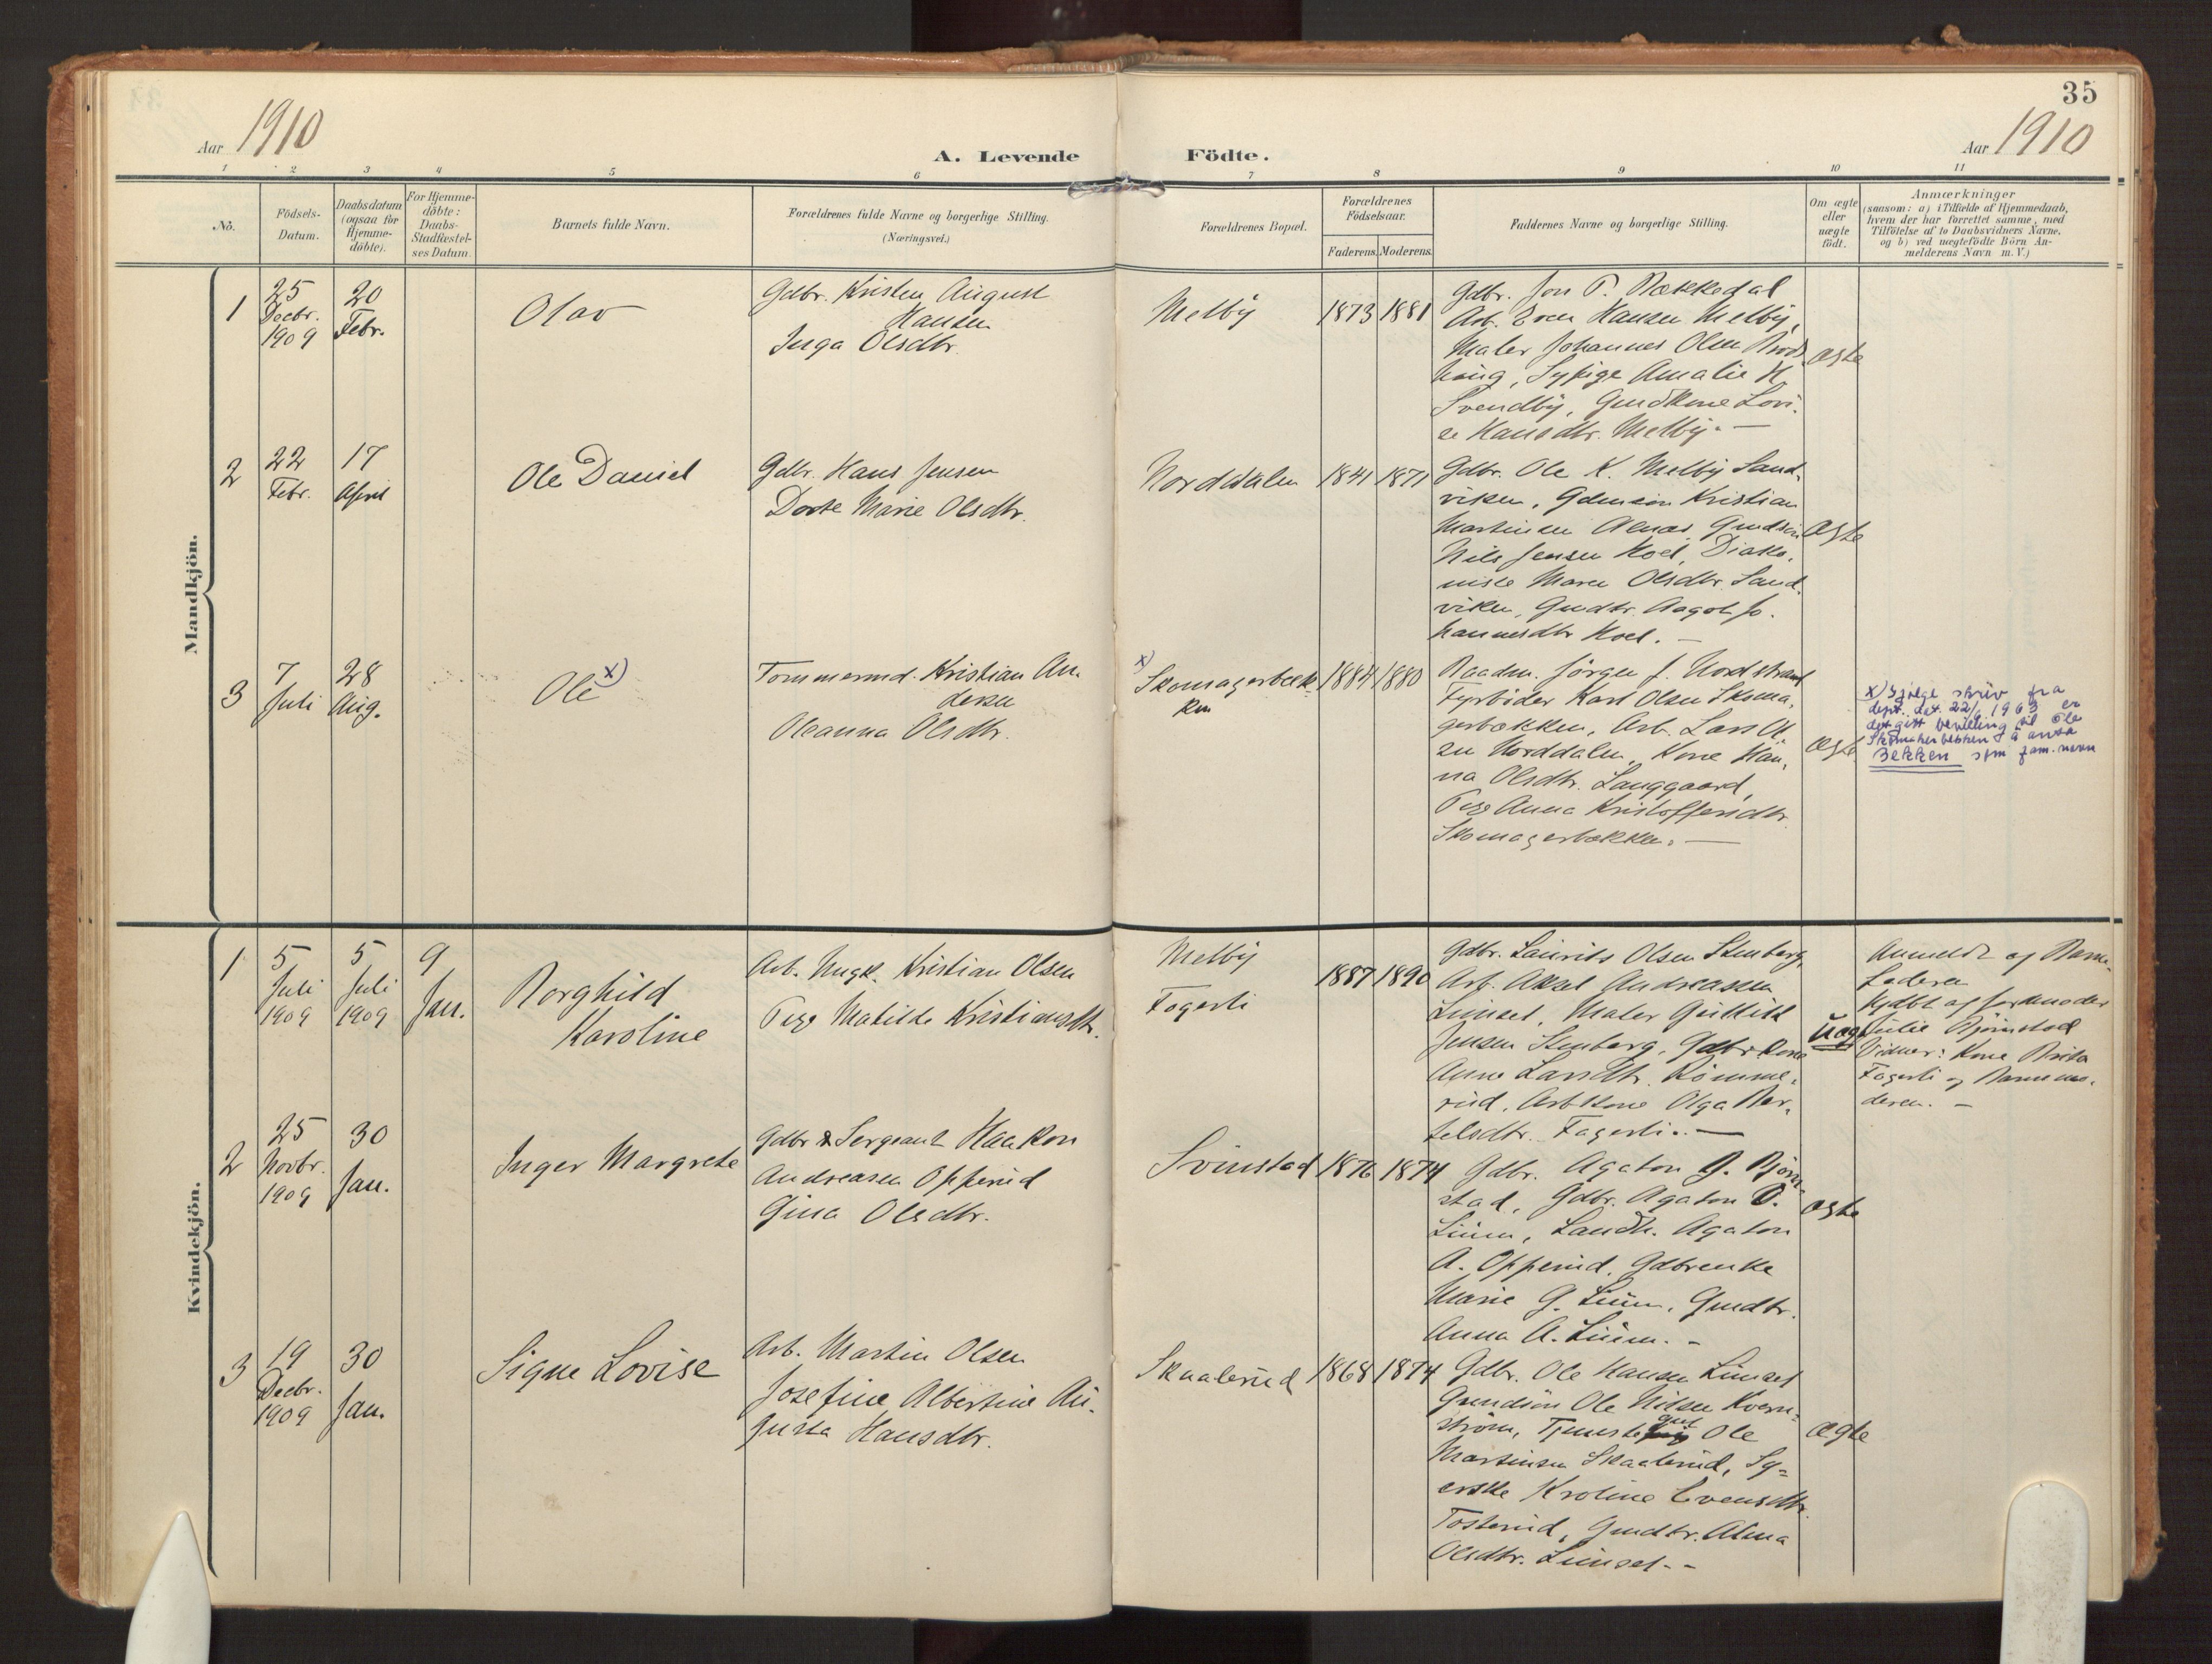 35
Aar 1910
A. Levende Födte.
Aar 1910
1 2 3 4 5 6 7 8 9 10 11
No.
Födsels-
Datum.
Daabsdatum
(ogsaa for
Hjemme-
döbte).
For Hjemme-
döbte:
Daabs-
Stadfæstel-
ses Datum.
Barnets fulde Navn.
Forældrenes fulde Navne og borgerlige Stilling.
(Næringsvei.)
Forældrenes Bopæl.
Forældrenes
Födselsaar.
Faderens. Moderens.
Faddernes Navne og borgerlige Stilling.
Om ægte
eller
uægte
födt.
Anmærkninger
(saasom: a) i Tilfælde af Hjemmedaab,
hvem der har forrettet samme, med
Tilföielse af to Daabsvidners Navne,
og b) ved uægtefödte Börn An-
melderens Navn m. V.)
Mandkjön.
1
25
Decbr.
1909
20
Febr.
Olav
Gdbr. Kristen August
Hansen
Inga Olsdtr.
Melby
1873 1881
Gdbr. Jon P. Bækkedal
Arb. Even Hansen Melby,
Maler Johannes Olsen Brods
haug, Sypige Amalie H.
Svendby, Gmdkone Lovi.
se Hansdtr. Melby. —
ægte
2
22
Febr.
17
April
Ole Daniel
Gdbr. Hans Jensen
Dorte Marie Olsdtr.
Norddalen
1841 1871
Gdbr. Ole K. Melby Sand.
viken, Gdmsøn Kristian
Martinsen Aenæs, Gmdsøn
Nils Jensen Hoel, Diako.
nisse Maren Olsdtr. Sand.
viken, Gmdtr. Aagot Jo.
hannesdtr Hoel. —
ægte
3
7
Juli
28
Aug.
Ole x)
Tømmermd. Kristian An.
dersen
Oleanna Olsdtr.
x)
Skomagerbæk.
ken
1884 1880
Raadm. Jørgen J. Nordstrand
Fyrbøder Karl Olsen Skoma.
gerbækken, Arb. Lars Ol.
sen Norddalen, Kone Han.
na Olsdtr. Langgaard,
Pige Anna Kristoffersdtr.
Skomagerbækken. —
ægte
x) Ifølge skriv fra
dept. dat. 22/ 1963 er
det gitt bevilling til Ole
Skomakerbekken å anta
Bekken som fam.navn
Kvindekjön.
1
5
Juli
1909
5
Juli
1909
9
Jan.
Borghild
Karoline
Arb. Ungk. Kristian Olsen
Pige Matilde Kristiansdtr.
Melby
Fagerli
1887 1890
Gdbr. Laurits Olsen Stenberg,
Arb. Aksel Andreassen
Linset, Maler Gullik
Jensen Stenberg, Gdbr.kone
Anne Larsdtr. Rømme.
rud, Arbkone Olga Ber.
telsdtr. Fagerli. —
Uægt
Anmeldt af Barne-
faderen
hjdbt. af Jordmoder
Julie Bjørnstad
Vidner: Kone Berta
Fagerli og Barnemo.
deren. —
2
25
Novbr.
1909
30
Jan.
Inger Margrete
Gdbr & Sergeant Haakon
Andreasen Opperud
Gina Olsdtr.
Svinstad
1876 1874
Gdbr. Agaton G. Bjørn-
stad, Gdbr. Agaton O.
Lium, Landh. Agaton
A. Opperud, Gdbrenke
Marie G. Lium, Gmdtr.
Anna A. Lium. —
ægte
3
19
Decbr.
1909
30
Jan.
Signe Lovise
Arb. Martin Olsen
Josefine Albertine Au.
gusta Hansdtr.
Skaalerud
1868 1874
Gdbr. Ole Hansen Linset
Gmmdsøn Ole Nilsen Kvern-
strøm, Tjenestegut Ole
Martinsen Skaalerud, Sy-
erske Kroline Evensdtr.
Tosterud, Gmdtr. Alma
Olsdtr. Linset. —
ægte